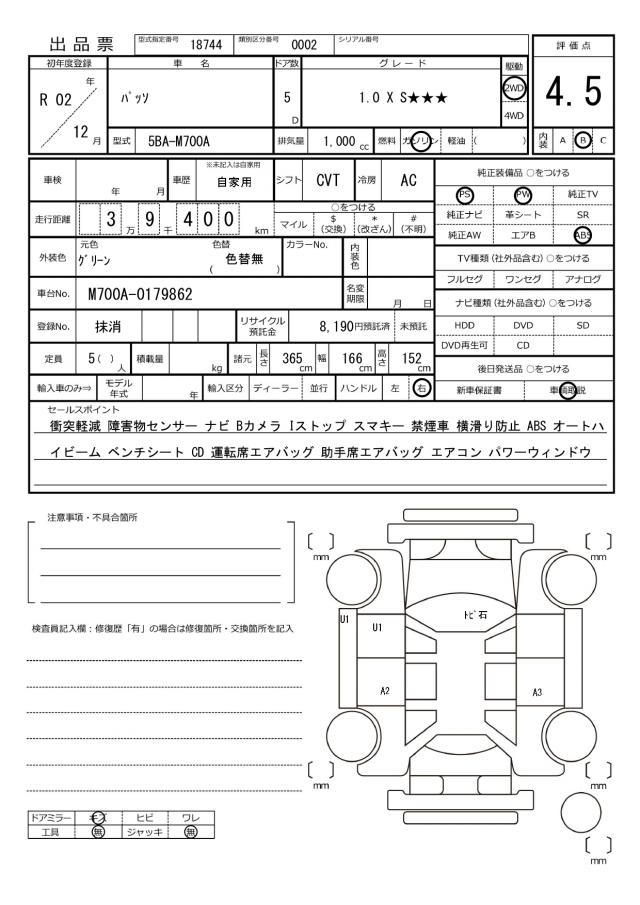 出品票 型式指定番号 18744 類別区分番号 0002 シリアル番号
評価点
4.5
内装 A B C
初年度登録 車名 ドア数 グレード 駆動
R 02 年 12 月 パッソ 5 D 1.0 X S★★★ 2WD 4WD
型式 5BA-M700A 排気量 1,000 cc 燃料 ガソリン 軽油 ( )
車検 年 月 車歴 ※未記入は自家用 自家用 シフト CVT 冷房 AC
走行距離 3 万 9 千 4 0 0 km
○をつける
マイル $(交換) *(改ざん) #(不明)
外装色 元色 グリーン 色替 ( 色替無 ) カラーNo. 内装色
車台No. M700A-0179862 名変期限 月 日
登録No. 抹消 リサイクル預託金 8,190円預託済 未預託
定員 5 ( ) 人 積載量 kg 諸元 長さ 365 cm 幅 166 cm 高さ 152 cm
輸入車のみ⇒ モデル年式 年 輸入区分 ディーラー 並行 ハンドル 左 右
純正装備品 ○をつける
PS PW 純正TV
純正ナビ 革シート SR
純正AW エアB ABS
TV種類 (社外品含む) ○をつける
フルセグ ワンセグ アナログ
ナビ種類 (社外品含む) ○をつける
HDD DVD SD
DVD再生可 CD
後日発送品 ○をつける
新車保証書 車輌取説
セールスポイント
衝突軽減 障害物センサー ナビ Bカメラ Iストップ スマキー 禁煙車 横滑り防止 ABS オートハ
イビーム ベンチシート CD 運転席エアバッグ 助手席エアバッグ エアコン パワーウィンドウ
注意事項・不具合箇所
検査員記入欄：修復歴「有」の場合は修復箇所・交換箇所を記入
mm mm
トビ石
U1 U1
A2 A3
mm mm
mm
ドアミラー キズ ヒビ ワレ
工具 無 ジャッキ 無